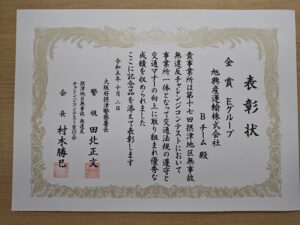 表彰状
金賞 Eグループ
旭興産運輸株式会社
Bチーム 殿
貴事業所は第十七回摂津地区無事故
無違反チャレンジコンテストにおいて
事業所一体となって交通法規の遵守と
交通マナーの向上に取り組まれ優秀な
成績を収められました
ここに記念品を添えて表彰します
令和五年十月二日
大阪府摂津警察署長
警視 田北正文
摂津地区無事故・無違反
チャレンジコンテスト実行委員会
会長 村木勝巳